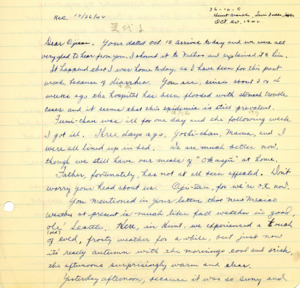 Rec. 10/26/44
36-10-E
Oct 20, 1944
Dear Ojisan: Your letter Oct 10 arrived today and we were all
very glad to hear from you. I showed it to Mother and explained it to him.
It happened that I was home today, as I have been for this past
week because of diarrhea. You see, since about 2 or 3
weeks ago, the hospital has been flooded with stomach trouble
cases and it seems that this epidemic is still prevalent.
was ill for one day and the following week
I got it. Three days ago, Yoshi-chan, Mama, and I
were all lined up in bed. We are much better now,
though we still have our meals of "Okayu" at home.
Father, fortunately, has not at all been affected. Don't
worry your head about us. for we're O.K. now.
You mentioned in your letter that New Mexico
weather at present is much like fall weather in good
ole' Seattle. Here, in Hunt, we experienced a touch
of cold, frosty weather for a while, but just now
it's really autumn with the mornings cool and brisk,
the afternoons surprisingly warm and clear.
Yesterday afternoon, because it was so sunny and